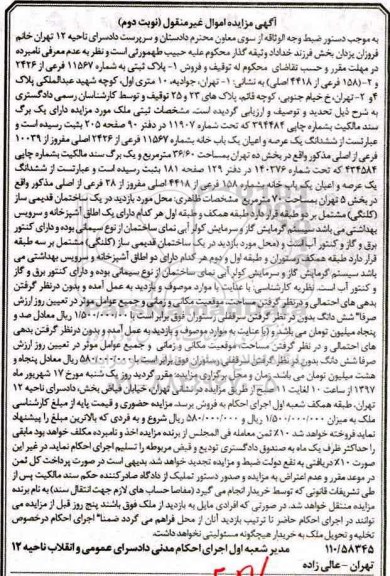 آگهی مزایده اموال غیرمنقول (نوبت دوم)
به موجب دستور ضبط وجه الوثاقه از سوی معاون محترم دادستان و سرپرست دادسرای ناحیه ۱۲ تهران خانم
فروزان یزدان بخش فرزند خداداد وثیقه گذار محکوم علیه حبیب طهمورثی است و نظر به عدم معرفی نامبرده
در مهلت مقرر و حسب تقاضای محکوم له توقیف و فروش ۱- پلاک ثبتی به شماره ۱۱۵۶۷ فرعی از ۲۴۲۶
و ۲- (۱۵۸ فرعی از ۴۴۱۸ اصلی) به نشانی: ۱- تهران، جوادیه، ۱۰ متری اول، کوچه شهید عبدالملکی پلاک
۴و ۲- تهران، خ خیام جنوبی، کوچه قائم، پلاک های ۲۳ و ۲۵ توقیف و توسط کارشناسان رسمی دادگستری
به شرح ذیل تحدید و توصیف و ارزیابی گردیده است. مشخصات ثبتی ملک مورد مزایده دارای یک برگ
سند مالکیت بشماره چاپی ۳۹۴۴۸۴ که تحت شماره ۱۱۹۰۷ در دفتر ۹۰ صفحه ۲۰۵ ثبت رسیده است و
عبارتست از ششدانگ یک عرصه و اعیان یک باب خانه بشماره ۱۱۵۶۷ فرعی از ۲۴۲۶ اصلی مفروز از ۱۰۰۳۹
فرعی از اصلی مذکور واقع در بخش ده تهران بمساحت ۳۶/۶۰ مترمربع و یک برگ سند مالکیت بشماره چاپی
۴۳۴۵۸۴ که تحت شماره ۱۴۰۲۷۶ در دفتر ۱۲۹ صفحه ۱۸۱ ثبت رسیده است و عبارتست از ششدانگ
یک عرصه و اعیان یک باب خانه بشماره ۱۵۸ فرعی از ۴۴۱۸ اصلی مفروز از ۲۸ فرعی از اصلی مذکور واقع
در بخش ۵ تهران بمساحت ۷۰ مترمربع مشخصات ظاهری: محل مورد بازدید در یک ساختمان قدیمی ساز
(کلنگی) مشتمل بر دو طبقه قرار دارد طبقه همکف و طبقه اول هر کدام دارای یک اطاق آشپزخانه و سرویس
بهداشتی می باشد سیستم گرمایش گاز و سرمایش کولر آبی نمای ساختمان از نوع سیمانی بوده و دارای کنتور
برق و گاز و کنتور آب است و (محل مورد بازدید در یک ساختمان قدیمی ساز (کلنگی) مشتمل بر سه طبقه
قرار دارد طبقه همکف رستوران و طبقه اول و دوم هر کدام دارای دو اطاق آشپزخانه و سرویس بهداشتی می
باشد سیستم گرمایش گاز و سرمایش کولر آبی نمای ساختمان از نوع سیمانی بوده و دارای کنتور برق و گاز
و کنتور آب است. نظریه کارشناسی: با عنایت به موارد موصوف و بازدید به عمل آمده و بدون درنظر گرفتن
بدهی های احتمالی و درنظر گرفتن مساحت، موقعیت مکانی و زمانی و جمیع عوامل موثر در تعیین روز ارزش
صرفا" شش دانگ بدون در نظر گرفتن سرقفلی رستوران فوق برابر است با ۱/۵۰۰/۰۰۰/۰۰۰ ریال معادل صد و
پنجاه میلیون تومان می باشد و (با عنایت به موارد موصوف و بازدید به عمل آمده و بدون درنظر گرفتن بدهی
های احتمالی و در نظر گرفتن مساحت، موقعیت مکانی و زمانی و جمیع عوامل موثر در تعیین روز ارزش
صرفا شش دانگ بدون در نظر گرفتن سرقفلی رستوران فوق برابر است با ۵۸۰/۰۰۰/۰۰۰ ریال معادل پنجاه و
هشت میلیون تومان می باشد. زمان و محل برگزاری مزایده: مقرر گردید روز یک شنبه مورخ ۱۷ شهریور ماه
۱۳۹۷ از ساعت ۱۰ لغایت ۱۱ صبح از طریق مزایده در نشانی تهران، خیابان فیاض بخش، دادسرای ناحیه ۱۲
تهران، طبقه همکف شعبه اول اجرای احکام به فروش برسد. مزایده حضوری و قیمت پایه از مبلغ کارشناسی
ملک به میزان ۱/۵۰۰/۰۰۰/۰۰۰ ریال و ۵۸۰/۰۰۰/۰۰۰ ریال شروع و به فردی که بالاترین مبلغ را پیشنهاد
نماید فروخته خواهد شد ۱۰٪ ثمن معامله فی المجلس از برنده مزایده اخذ و نامبرده مکلف خواهد بود مابقی
را حداکثر ظرف یک ماه به صندوق دادگستری تودیع و قبض مربوطه را تسلیم اجرای احکام نماید، در غیر این
صورت ۱۰٪ دریافتی به نفع دولت ضبط و مزایده تجدید خواهد شد. بدیهی است در صورت پرداخت کل ثمن
در موعد مقرر و عدم اعتراض به مزایده و صدور دستور تملیک از دادگاه صادرکننده حکم سند مالکیت پس از
طی تشریفات قانونی که توسط خریدار انجام می گیرد (مفاصا حساب های لازم جهت انتقال سند) به نام برنده
مزایده منتقل خواهد شد. در صورتی که افرادی مایل به بازدید از ملک فوق باشند پنج روز قبل از مزایده می
توانند در اجرای احکام حاضر تا ترتیب بازدید آنان از محل فراهم می گردد ضمنا" اجرای احکام درخصوص
تخلیه و تحویل ملک به خریدار هیچگونه مسئولیتی نخواهد داشت.
۱۱۰/۵۸۳۴۵ مدیر شعبه اول اجرای احکام مدنی دادسرای عمومی و انقلاب ناحیه ۱۲
تهران - عالی زاده